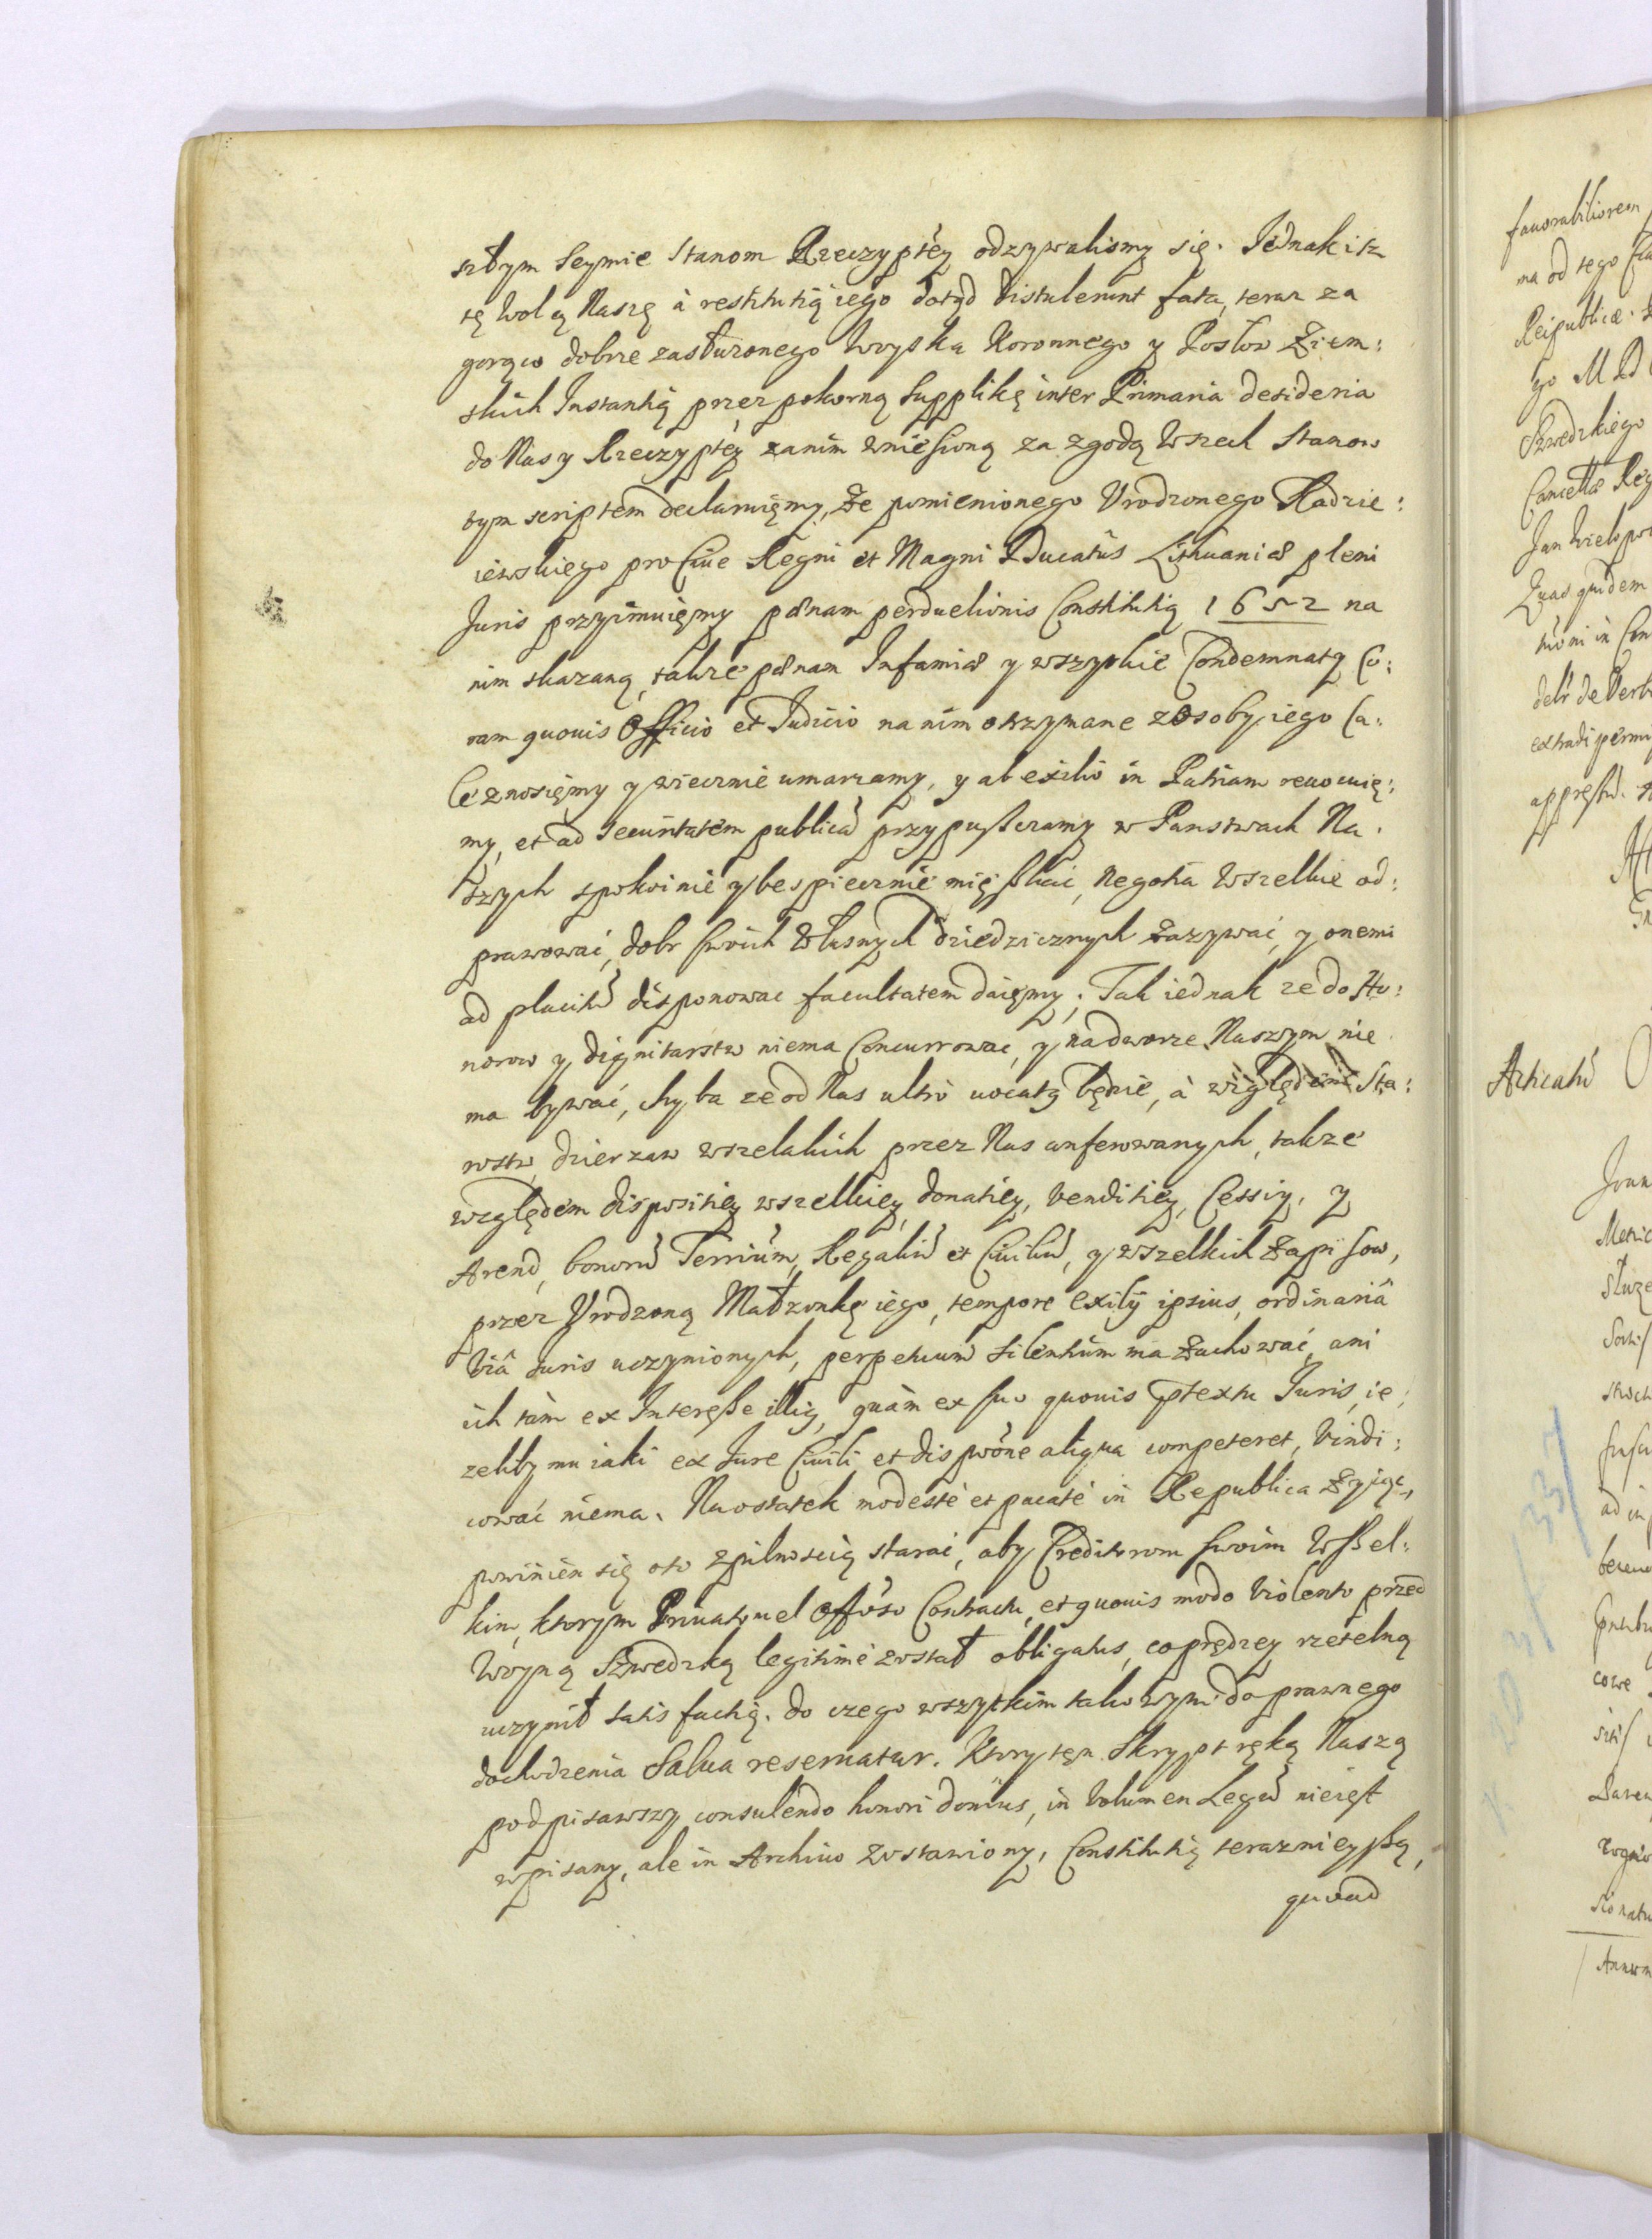 szłym Seymie Stanom Rzeczyptéy odzywalismy się. Jednak isz
tę Wolą Naszę à restitutią iego dotąd distulerunt fata, teraz za
gorąco dobrze zasłużonego Woyska Koronnego y Posłow Ziem:
skich Instantią przez pokorną Supplikę inter Primaria desideria
do Nas y Rzeczyptéy zanim wniesioną za zgodą Wszech Stanow
tym scriptem declaruięmy, Że pomienionego Vrodzonego Radzie:
iewskiego pro Ciue Regni et Magni Ducatûs Lithuaniæ pleni
Juris przyimuięmy pœnam perduelionis Constitutią 1652 na
nim skazaną, także pœnam Infamiæ y wszystkie Condemnaty Co:
ram quouis Officio et Judicio na nim otrzymane z osoby iego Ca:
le znosięmy y wiecznie umarzamy, y ab exilio in Patriam reuocuię:
my, et ad Securitatem publicā przypuszczamy w Panstwach Na:
szych spokoinie y bespiecznie mięszkać, Negotia Wszelkie od:
prawować, dobr swoich Własnych dziedzicznych zazywać, y onemi
ad placitū disponowac facultatem daięmy; Tak iednak ze do Ho:
norow y dignitarstw niema Concurrować, y na dworze Naszym nie
ma bywać, chyba ze od Nas ultrò uocaty będzie, à względem Sta:
rostw, dzierzaw wszelakich przez Nas conferowanych, takze
względem dispositiey wszelkiey, donatiey, Venditiey, Cessiy, y
Arend, bonorū Terrium, Regaliū et Ciuiliū, y wszelkich Zapisow,
przez Vrodzoną Małzonkę iego, tempore exilij ipsius, ordinariâ
Viâ Iuris uczynionych, perpetuum silentium ma Zachować, ani
ich tàm ex Interesse illig, quàm ex suo quouis ptextu Juris, ie:
zeliby mu iaki ex Jure Ciuili et dispoõne aliqua competeret, Vindi:
cować niema. Na ostatek modestè et pacatè in Republica Zyiąc,
powinien się oto z pilnoscią starać, aby Creditorom swoim Wszel:
kim, ktorym Priuato uel Offõso Contractu, et quouis modo Violento przed
Woyną Szwedzką legitimè został obligatus, co prędzey rzetelną
uczynił satisfactią. Do czego wszytkim takowym do prawnego
dochodzenia Salua reseruatur. Ktory tęn Skrypt ręką Naszą
podpisawszy consulendo honori domus, in Volumen Legū nieiest
wpisany, ale in Archiuo Zostawiony, Constitutią teraznieyszą,
quoad